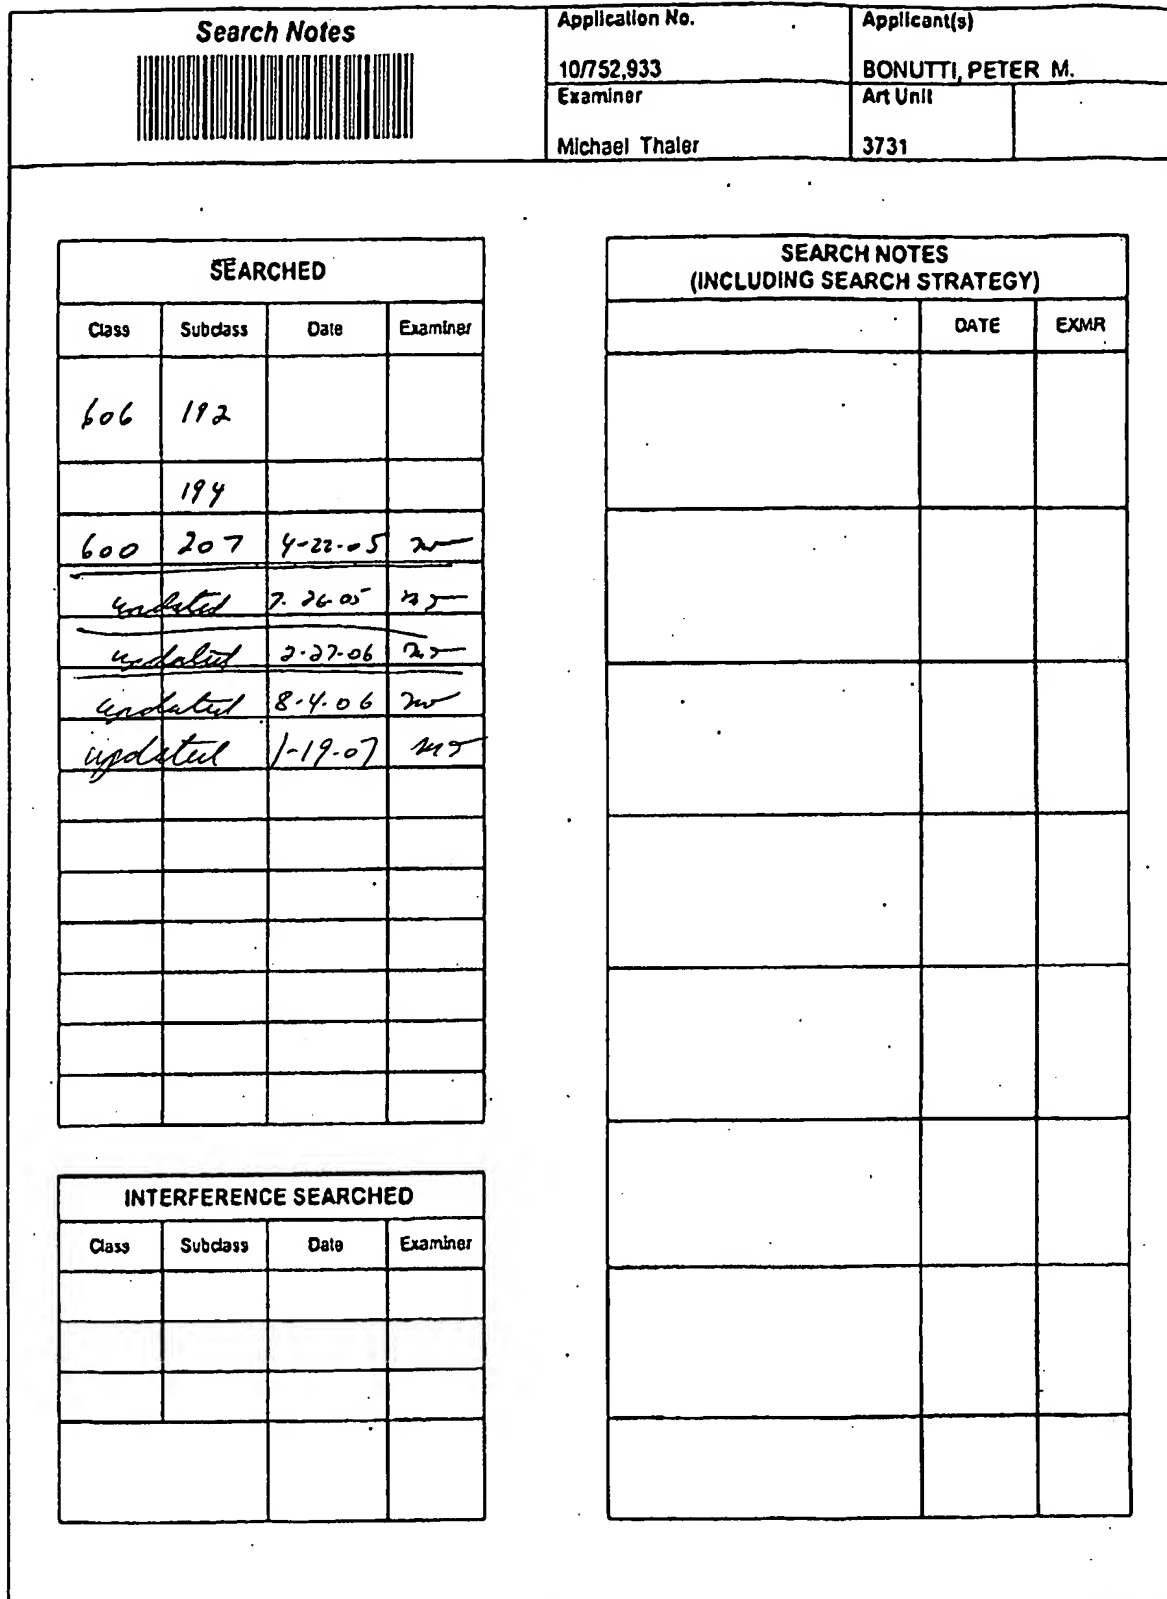 Search Notes
Application No.
Applicant(s)
10/752,933
BONUTTI, PETER M.
Examiner
Art Unit
Michael Thaler
3731
SEARCHED
Class Subclass Date Examiner
606 192
194
600 207 4-22-05
updated 7-26-05
updated 2-27-06
updated 8-4-06
updated 1-19-07
INTERFERENCE SEARCHED
Class Subclass Date Examiner
SEARCH NOTES
(INCLUDING SEARCH STRATEGY)
DATE EXMR